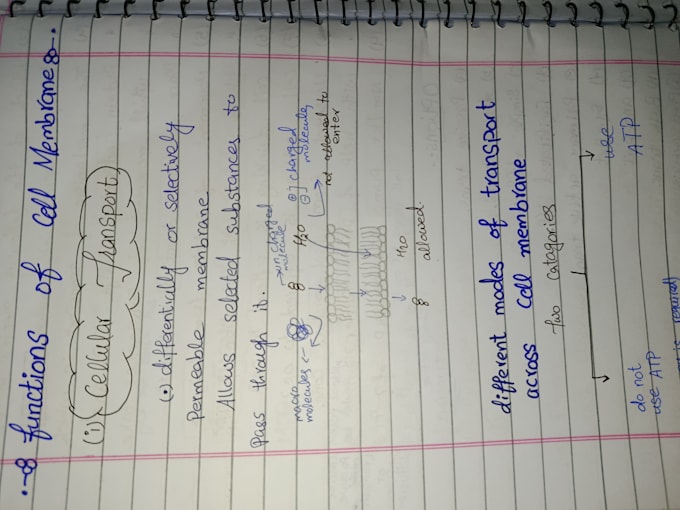 functions of Cell Membrane
(i) Cellular Transport
(•) differentially or selectively
Permeable membrane
Allows selected substances to
Pass through it.
macro
molecules
uncharged
molecule
H2O
⊕ ⊖ ] charged
molecules
not allowed to
enter
H2O
allowed
different modes of transport
across Cell membrane
two catagories
do not
use ATP
use
ATP